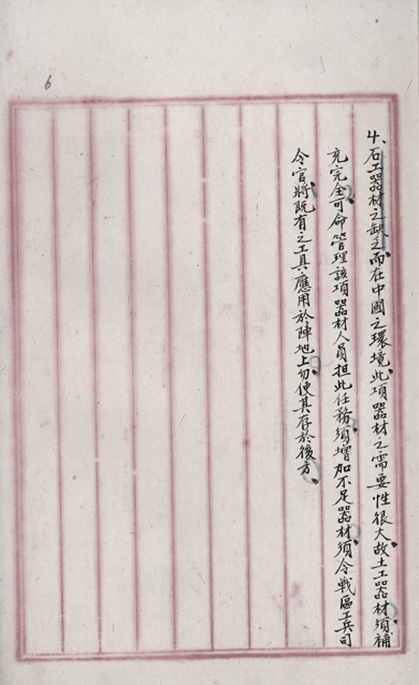 6
4、石工器材之缺乏而在中國之環境此項器材之需要性很大故土工器材須補
充完全可命管理該項器材人員担此任務須增加不足器材須令戰區工兵司
令官將既有之工具應用於陣地上勿使其存於後方、